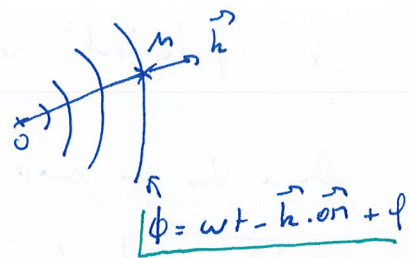 M
k⃗
O
ϕ = ωt - k⃗.OM⃗ + φ